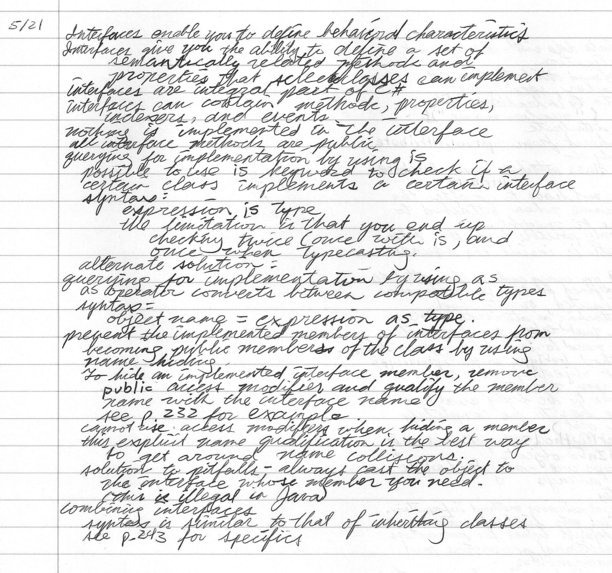 5/21
Interfaces enable you to define behavioral characteristics
Interfaces give you the ability to define a set of
semantically related methods and
properties that select classes can implement
interfaces are integral part of C#
interfaces can contain methods, properties,
indexers, and events
nothing is implemented in the interface
all interface methods are public
querying for implementation by using is
possible to use is keyword to check if a
certain class implements a certain interface
syntax:
expression is type
the limitation is that you end up
checking twice (once with is, and
once when typecasting.
alternate solution:
querying for implementation by using as
as operator converts between compatible types
syntax=
object name = expression as type.
prevent the implemented members of interfaces from
becoming public members of the class by using
name hiding
to hide an implemented interface member, remove
public access modifier and qualify the member
name with the interface name
see p. 232 for example
cannot use access modifiers when hiding a member
this explicit name qualification is the best way
to get around name collisions.
solution to pitfalls - always cast the object to
the interface whose member you need.
(this is illegal in Java)
combining interfaces
syntax is similar to that of inheriting classes
see p. 243 for specifics